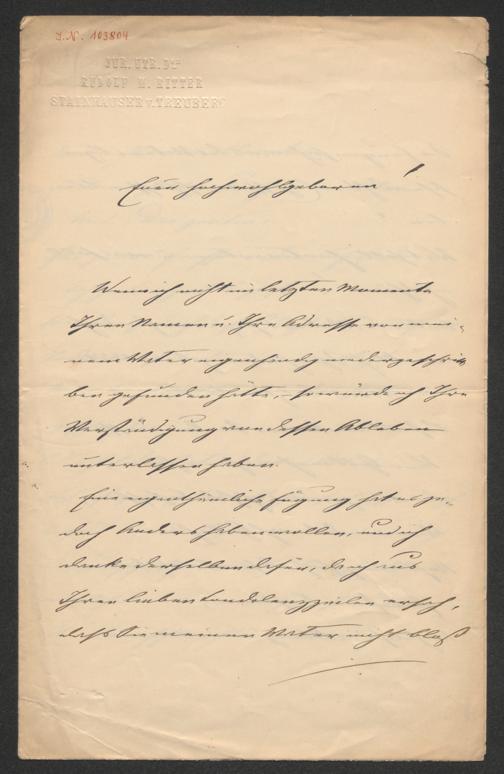 J.N. 103804
JUR. UTR. DR
RUDOLF M. RITTER
STAINHAUSER v. TREUBERG
Euer Hochwohlgeboren!
Wenn ich nicht im letzten Momente
Ihren Namen u. Ihre Adresse von mei-
nem Vater eigenhändig niedergeschrie-
ben gefunden hätte, – so würde ich Ihre
Verständigung von dessen Ableben
unterlassen haben.
Eine eigenthümliche Fügung hat es je-
doch anders haben wollen, und ich
danke derselben dafür, da ich aus
Ihren lieben Condolenzzeilen ersah,
dass Sie meinen Vater nicht bloß